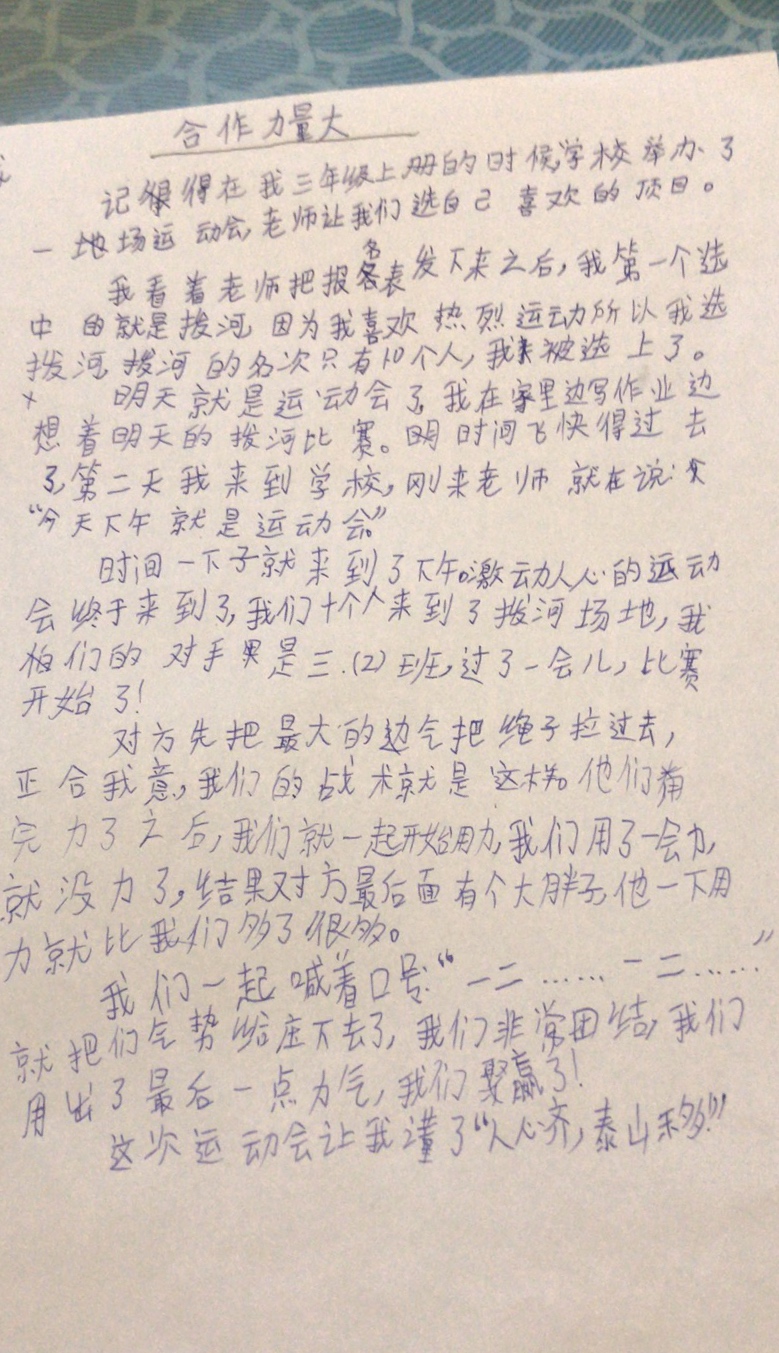 合作力量大
记得在我三年级上册的时候,学校举办了
一场运动会,老师让我们选自己喜欢的项目。
我看着老师把报名表发下来之后,我第一个选
中的就是拨河,因为我喜欢热烈运动所以我选
拨河,拨河的名次只有10个人,我被选上了。
明天就是运动会了,我在家里边写作业边
想着明天的拨河比赛。时间飞快得过去
了,第二天我来到学校,刚来老师就在说:
“今天下午就是运动会。”
时间一下子就来到了下午。激动人心的运动
会终于来到了,我们十个人来到了拨河场地,我
们的对手是三.(2)班,过了一会儿,比赛
开始了!
对方先把最大的力气把绳子拉过去,
正合我意,我们的战术就是这样。他们
完力了之后,我们就一起开始用力,我们用了一会力,
就没力了,结果对方最后面有个大胖子,他一下用
力就比我们多了很多。
我们一起喊着口号:“一二……一二……”
就把们气势给压下去了,我们非常团结,我们
用出了最后一点力气,我们赢了!
这次运动会让我懂了“人心齐,泰山移!”